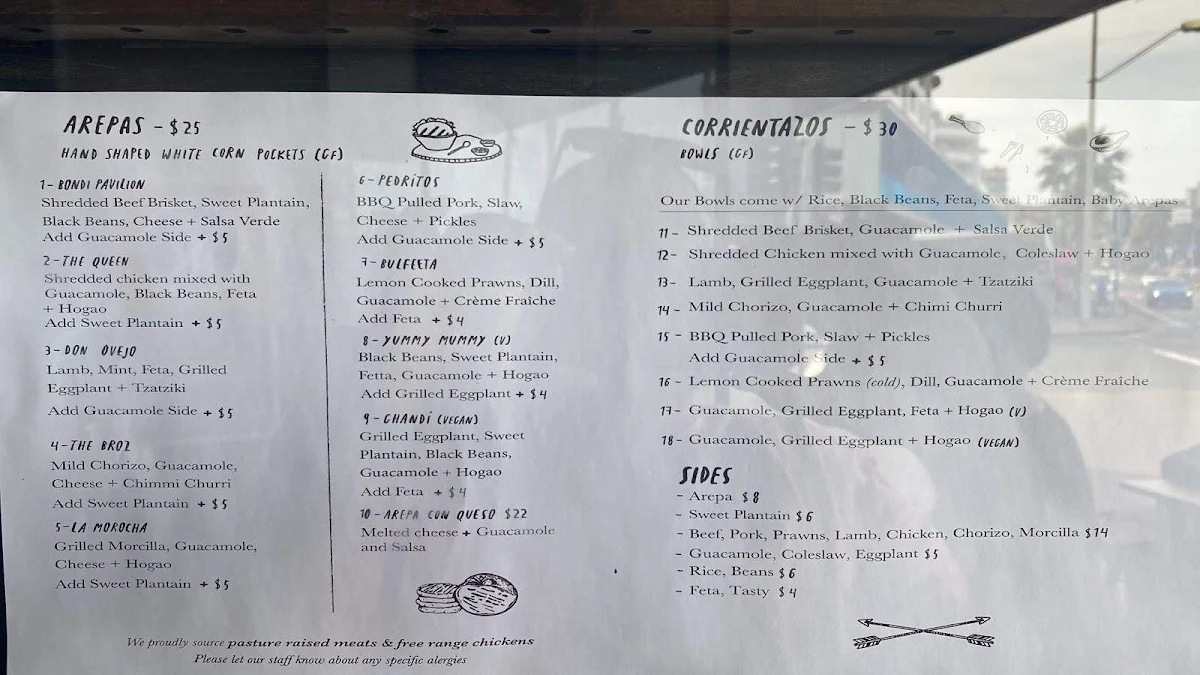 AREPAS - $25
HAND SHAPED WHITE CORN POCKETS (GF)
1- BONDI PAVILION
Shredded Beef Brisket, Sweet Plantain,
Black Beans, Cheese + Salsa Verde
Add Guacamole Side + $5
2-THE QUEEN
Shredded chicken mixed with
Guacamole, Black Beans, Feta
+ Hogao
Add Sweet Plantain + $5
3- DON OVEJO
Lamb, Mint, Feta, Grilled
Eggplant + Tzatziki
Add Guacamole Side + $5
4-THE BROZ
Mild Chorizo, Guacamole,
Cheese + Chimmi Churri
Add Sweet Plantain + $5
5-LA MOROCHA
Grilled Morcilla, Guacamole,
Cheese + Hogao
Add Sweet Plantain + $5
6- PEDRITOS
BBQ Pulled Pork, Slaw,
Cheese + Pickles
Add Guacamole Side + $5
7- BULFEETA
Lemon Cooked Prawns, Dill,
Guacamole + Crème Fraîche
Add Feta + $4
8- YUMMY MUMMY (V)
Black Beans, Sweet Plantain,
Fetta, Guacamole + Hogao
Add Grilled Eggplant + $4
9- GHANDÍ (VEGAN)
Grilled Eggplant, Sweet
Plantain, Black Beans,
Guacamole + Hogao
Add Feta + $4
10- AREPA CON QUESO $22
Melted cheese + Guacamole
and Salsa
We proudly source pasture raised meats & free range chickens
Please let our staff know about any specific alergies
CORRIENTAZOS - $30
BOWLS (GF)
Our Bowls come w/ Rice, Black Beans, Feta, Sweet Plantain, Baby Arepas
11- Shredded Beef Brisket, Guacamole + Salsa Verde
12- Shredded Chicken mixed with Guacamole, Coleslaw + Hogao
13- Lamb, Grilled Eggplant, Guacamole + Tzatziki
14- Mild Chorizo, Guacamole + Chimi Churri
15- BBQ Pulled Pork, Slaw + Pickles
Add Guacamole Side + $5
16- Lemon Cooked Prawns (cold), Dill, Guacamole + Crème Fraîche
17- Guacamole, Grilled Eggplant, Feta + Hogao (V)
18- Guacamole, Grilled Eggplant + Hogao (VEGAN)
SIDES
- Arepa $8
- Sweet Plantain $6
- Beef, Pork, Prawns, Lamb, Chicken, Chorizo, Morcilla $14
- Guacamole, Coleslaw, Eggplant $5
- Rice, Beans $6
- Feta, Tasty $4